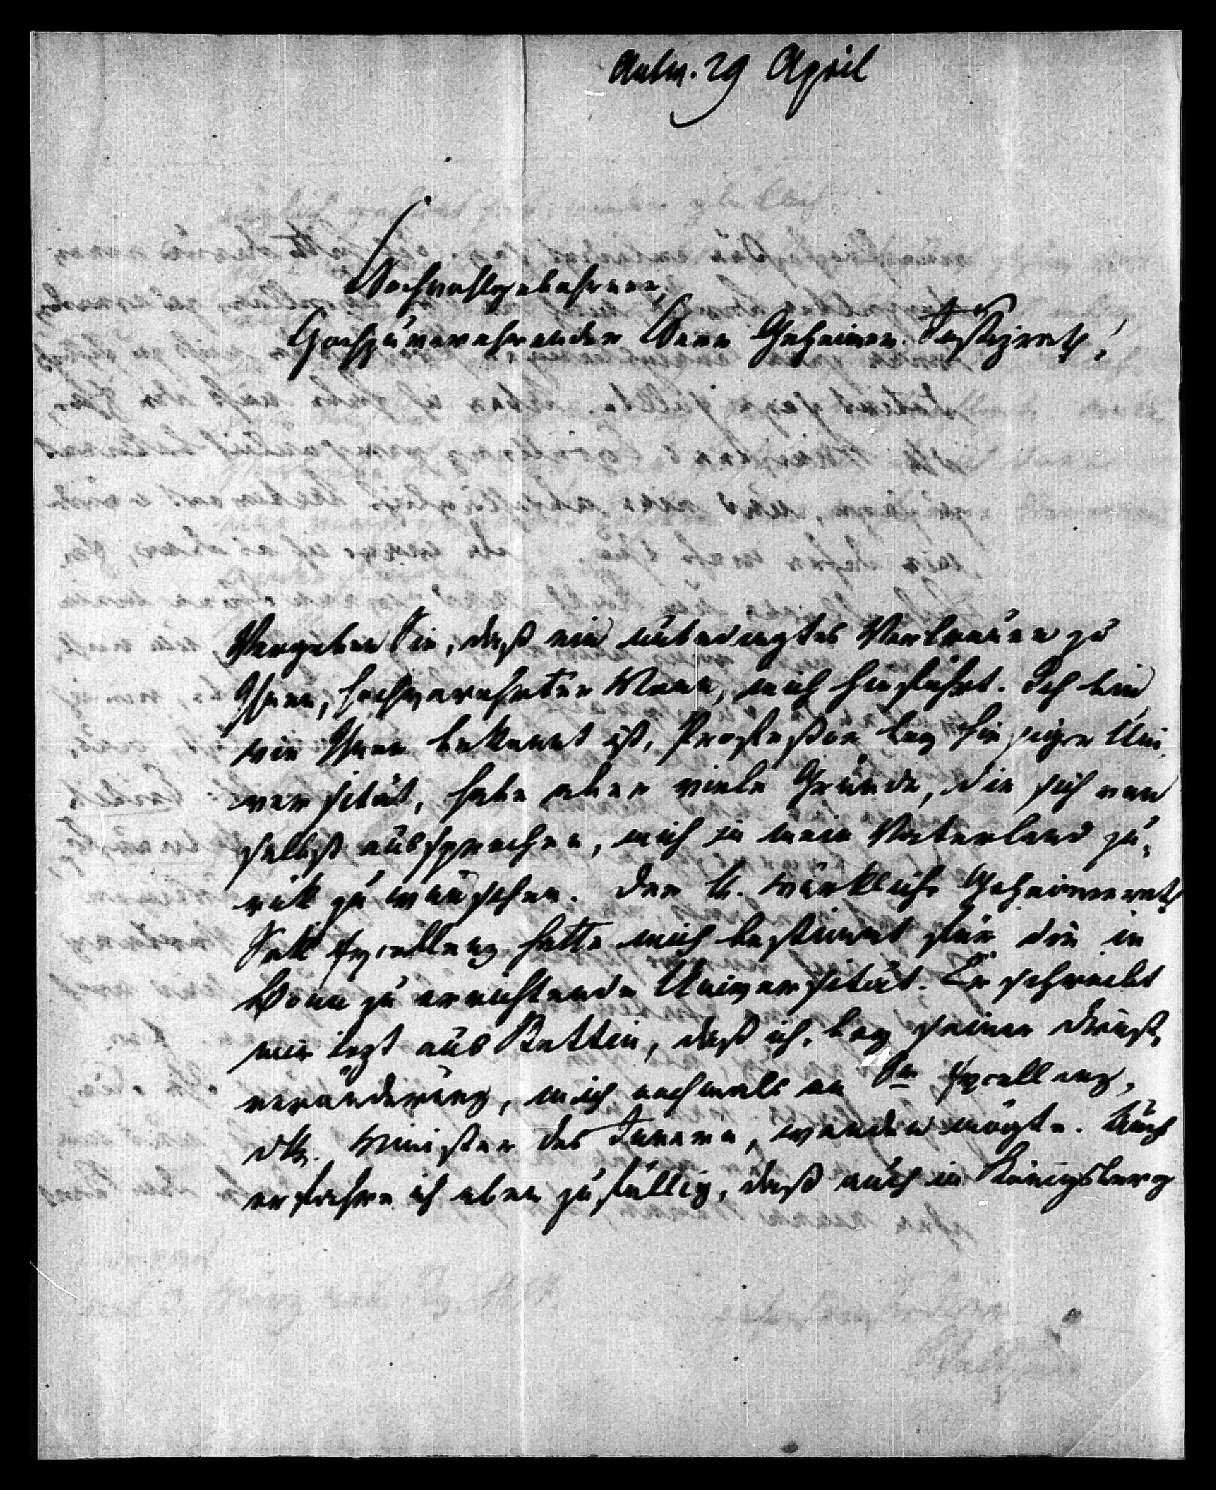 Antw. 29 April
Hochwohlgebohrener,
Hochzuverehrender Herr Geheimer Justizrath!
Vergeben Sie, daß ein unbedingtes Vertrauen zu
Ihnen, hochverehrter Mann, mich hinführt. Ich bin,
wie Ihnen bekannt ist, Professor bey hiesiger Uni„
versität, habe aber viele Gründe, die sich von
selbst aussprechen, mich in mein Vaterland zu„
rük zu wünschen. Der H. würkliche Geheimerath
Sak Excellenz hatte mich bestimmt für die in
Bonn zu errichtende Universität. Er schreibt
mir izt aus Stettin, daß ich, bey seiner Dienst„
veränderung, mich nochmals an Sr Excellenz,
dH. Minister des Innern, wenden mögte. Auch
erfahre ich eben zufällig, daß auch in Königsberg